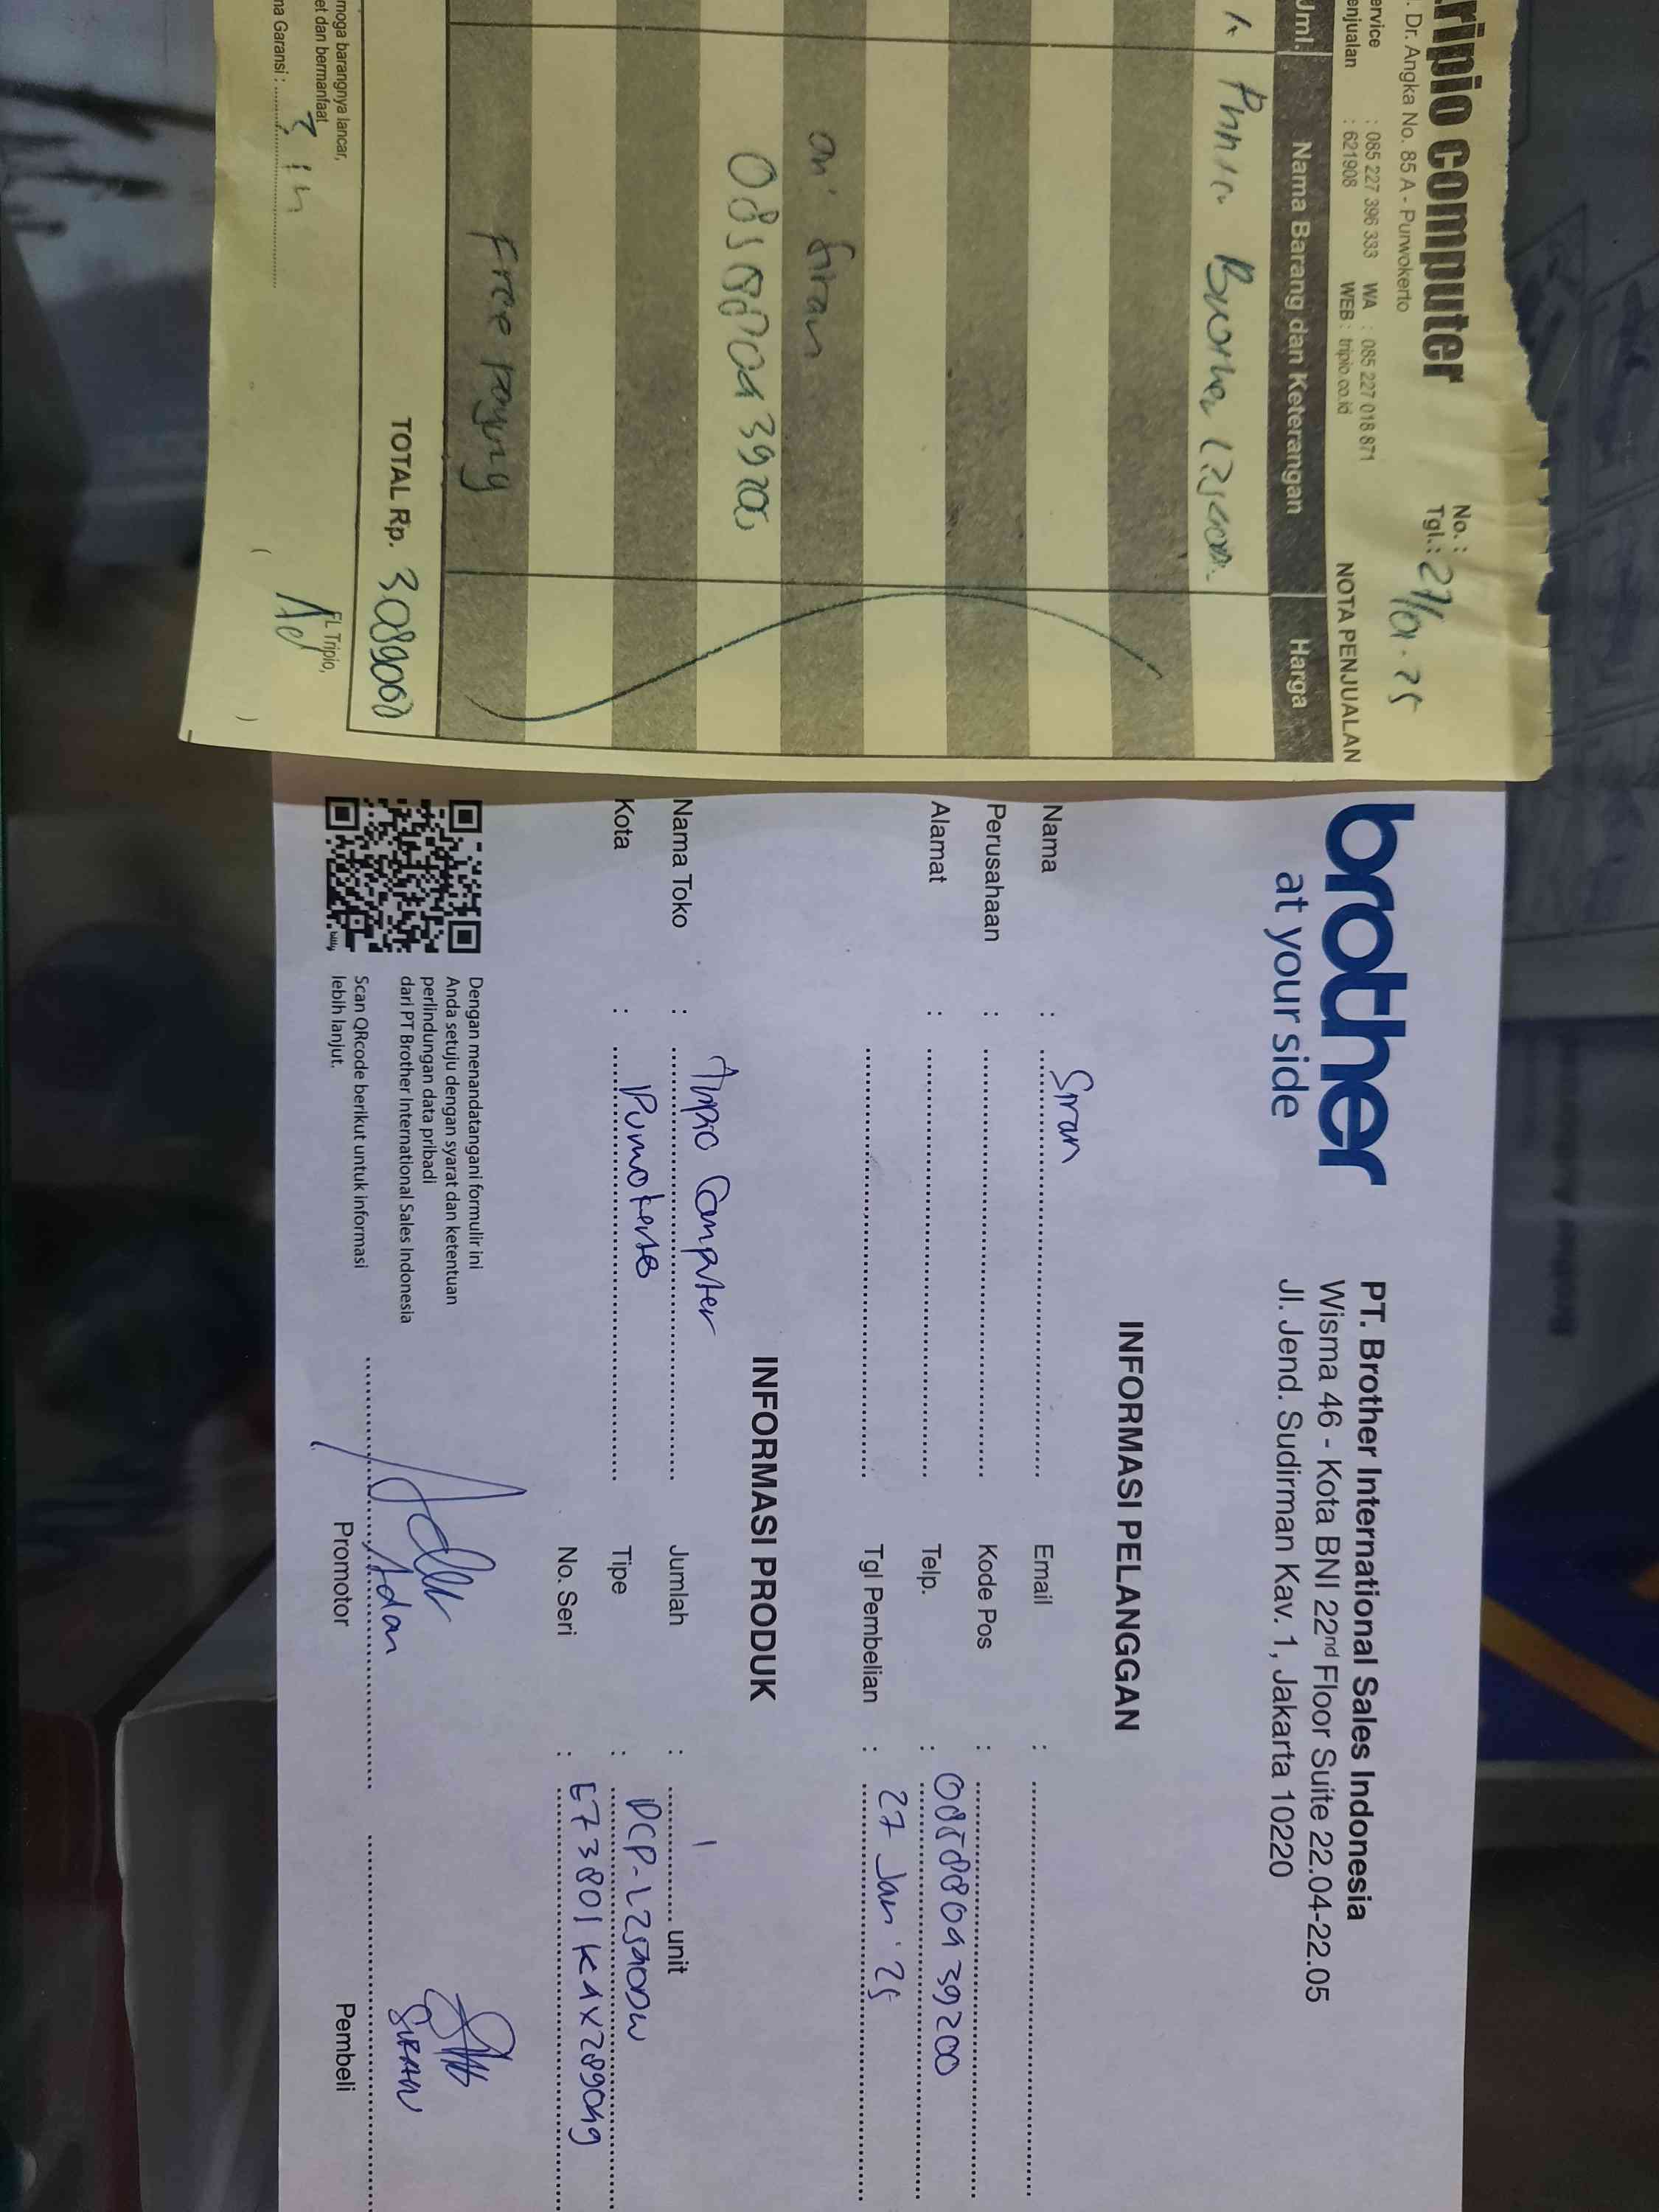 ripio computer
. Dr. Angka No. 85 A - Purwokerto
ervice : 085 227 396 333 WA : 085 227 018 871
enjualan : 621908 WEB : tripio.co.id
No. :
Tgl.: 27/01.25
NOTA PENJUALAN
Jml. Nama Barang dan Keterangan Harga
Brother
an.
08588043920
Free payung
TOTAL Rp. 3089000
moga barangnya lancar,
et dan bermanfaat
na Garansi :
FL Tripio,
( )
brother
at your side
PT. Brother International Sales Indonesia
Wisma 46 - Kota BNI 22nd Floor Suite 22.04-22.05
Jl. Jend. Sudirman Kav. 1, Jakarta 10220
INFORMASI PELANGGAN
Nama :
Email :
Perusahaan :
Kode Pos :
Alamat :
Telp. :
Tgl Pembelian : 27 Jan'25
INFORMASI PRODUK
Nama Toko : Tripio Computer
Jumlah : 1 unit
Kota : Purwokerto
Tipe : DCP-L2540DW
No. Seri :
Dengan menandatangani formulir ini
Anda setuju dengan syarat dan ketentuan
perlindungan data pribadi
dari PT Brother International Sales Indonesia
Scan QRcode berikut untuk informasi
lebih lanjut.
Adan
Promotor
Pembeli